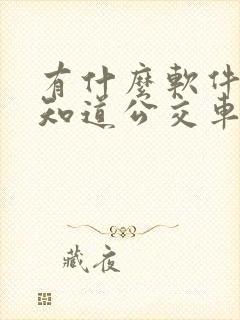 有什麼軟件
知道公交車
藏夜